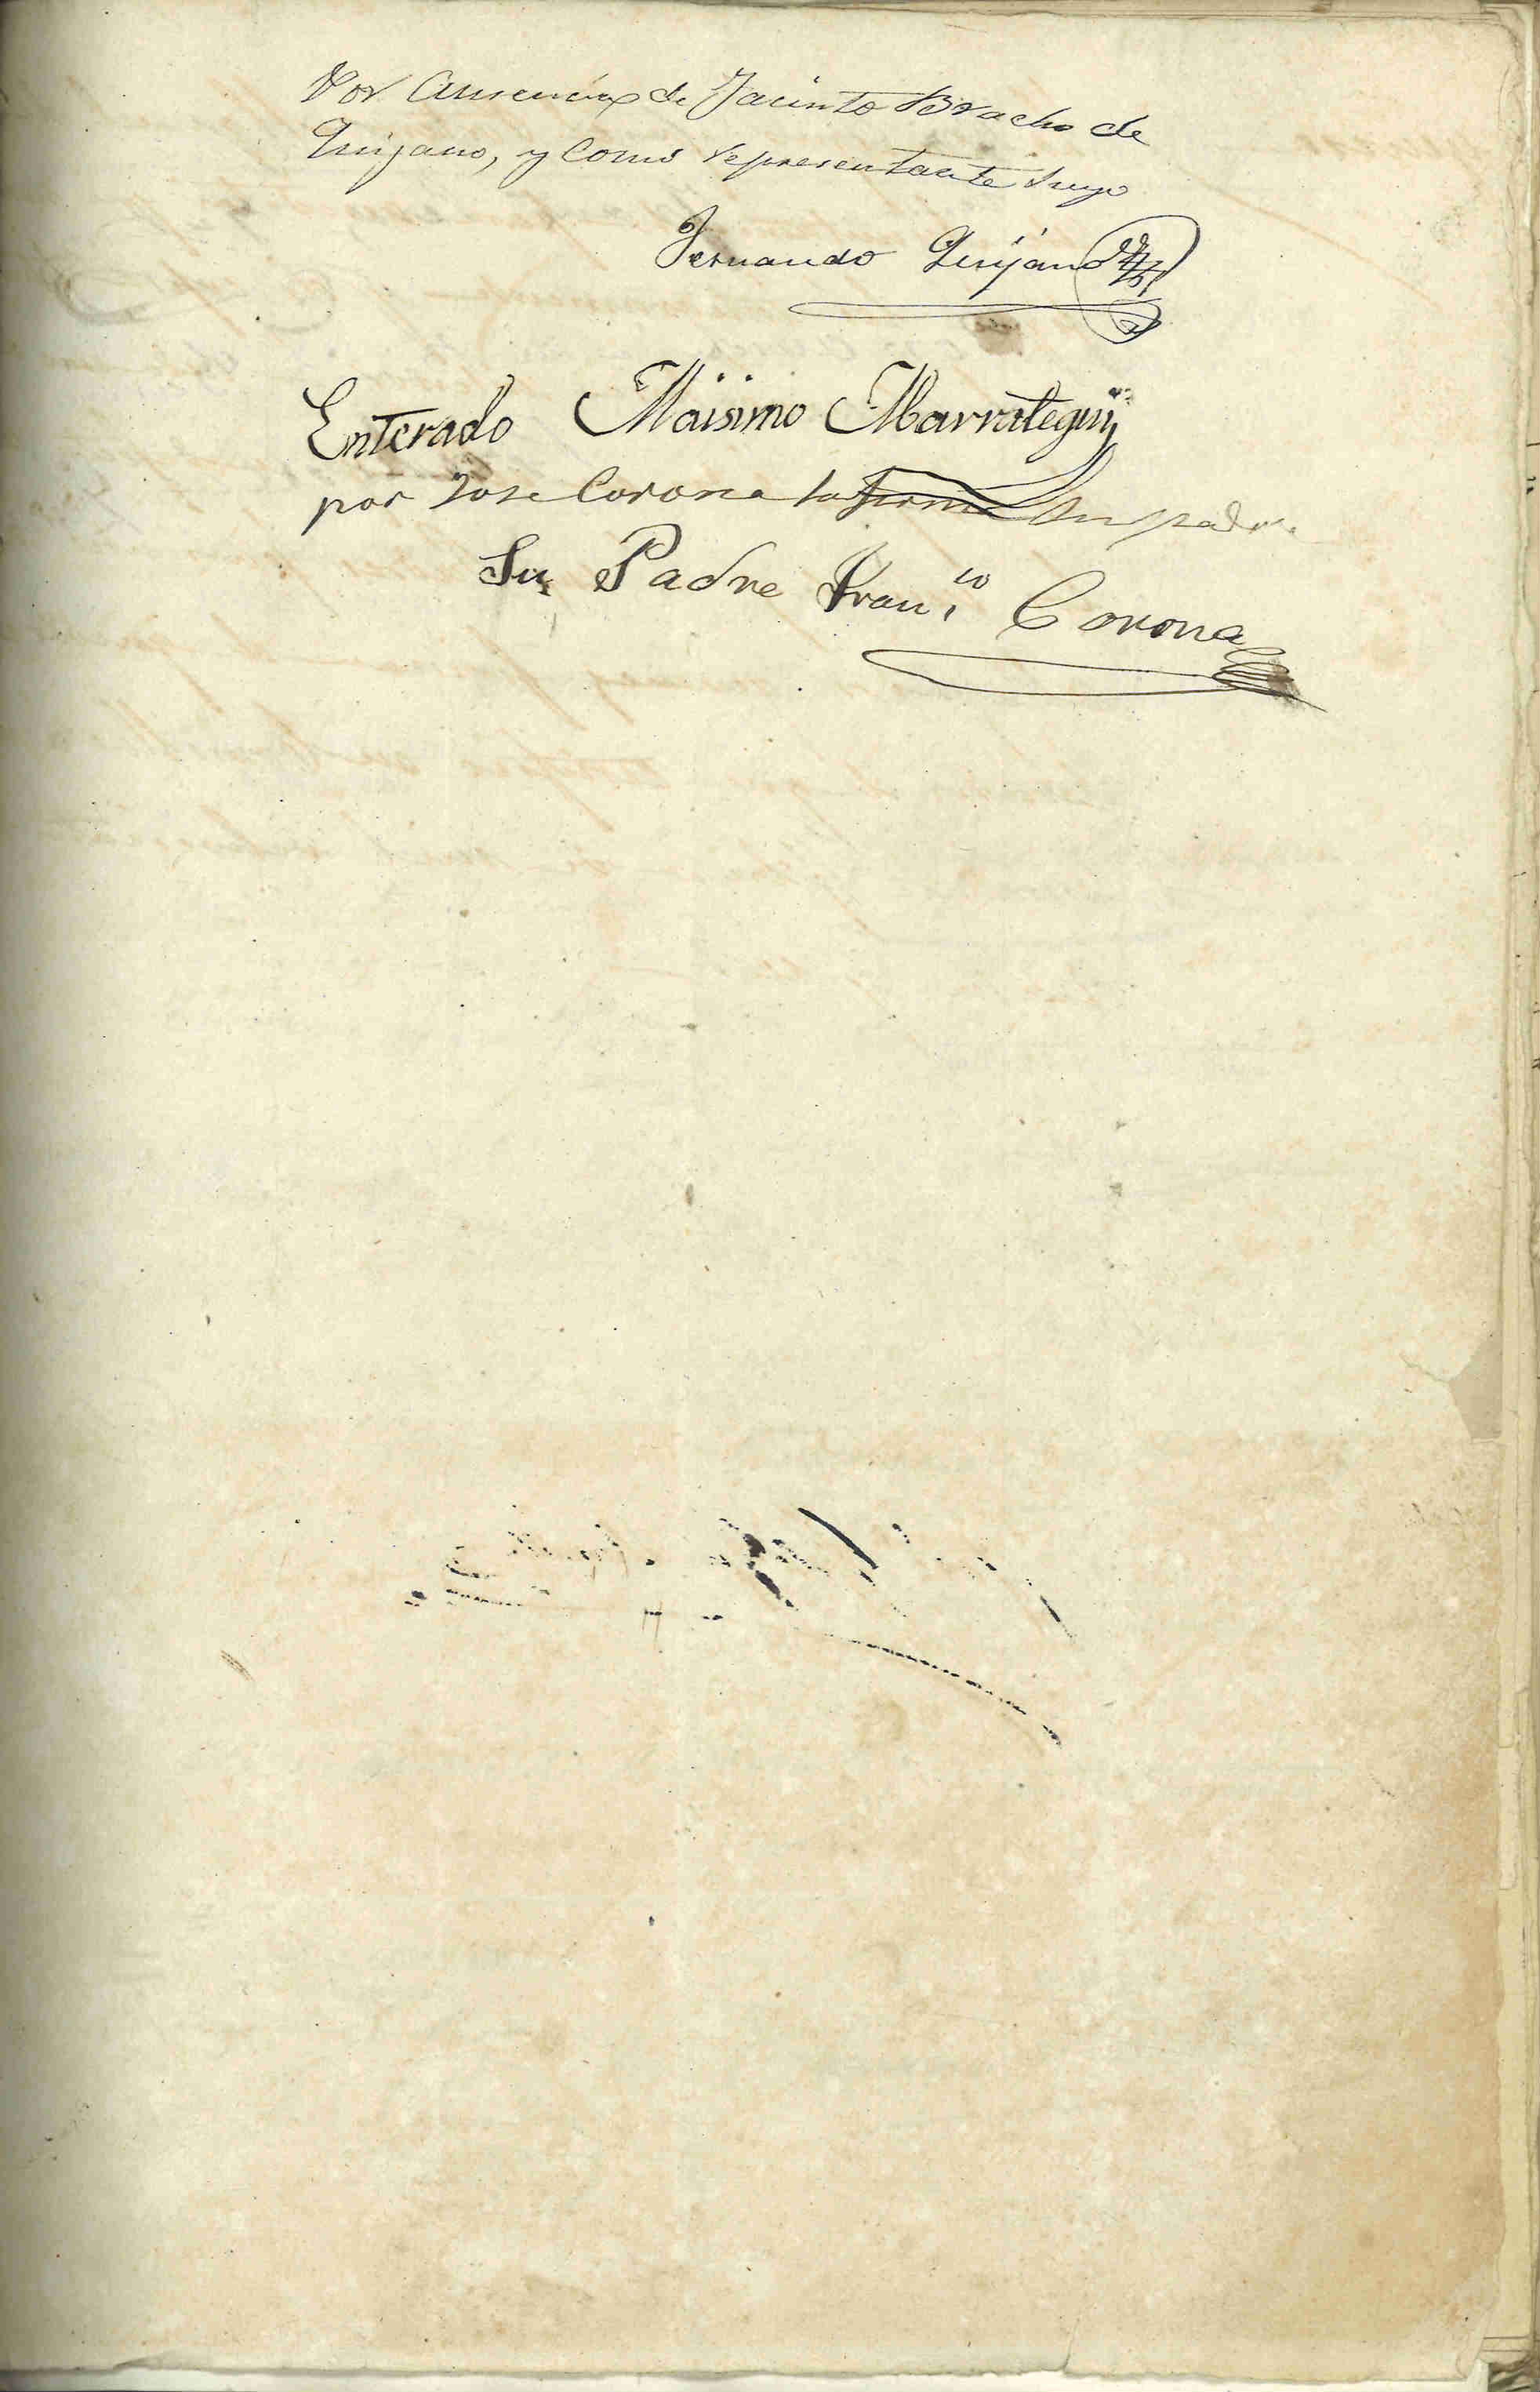 Por Ausencia de Jacinto Bracho de
Quijano, y Como representante suyo
Fernando Quijano
Enterado Maisimo Marrategui
por Jose Corona lo firma su padre
Su Padre Fran.co Corona